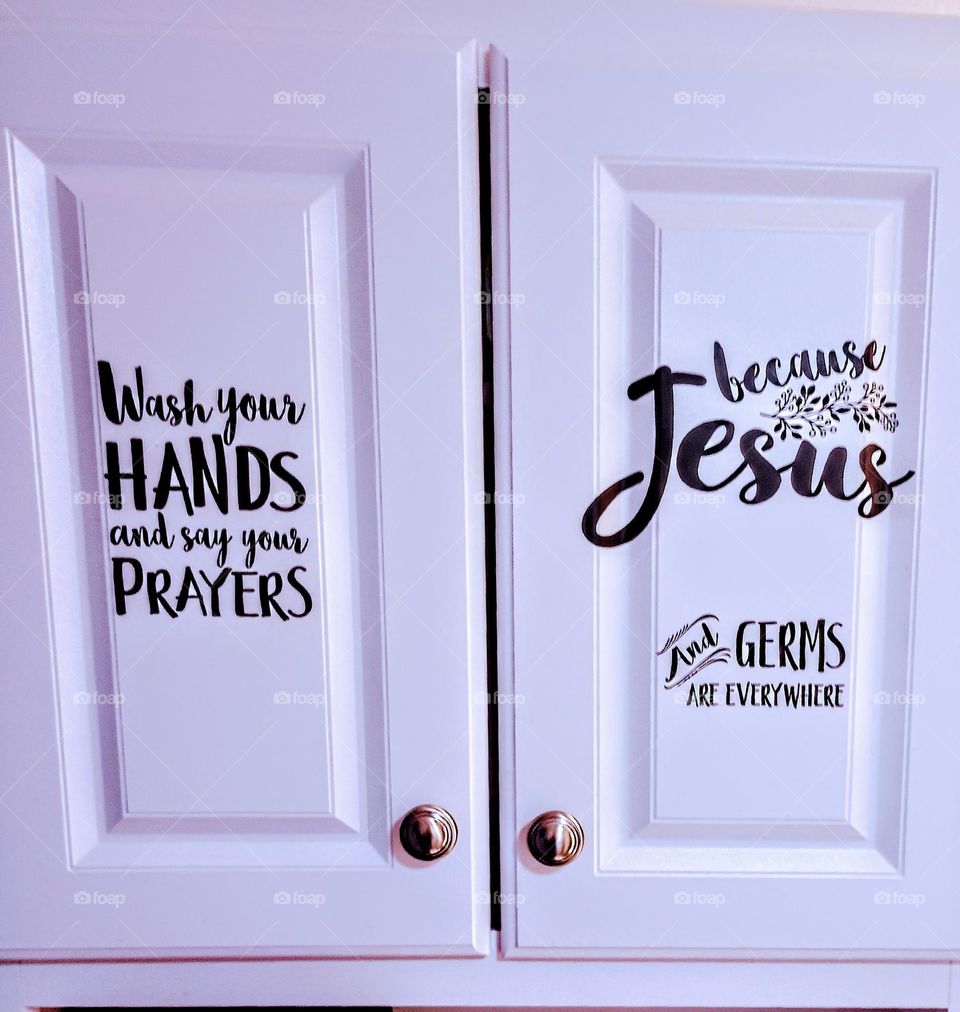 Wash your
HANDS
and say your
PRAYERS
because
Jesus
And GERMS
ARE EVERYWHERE